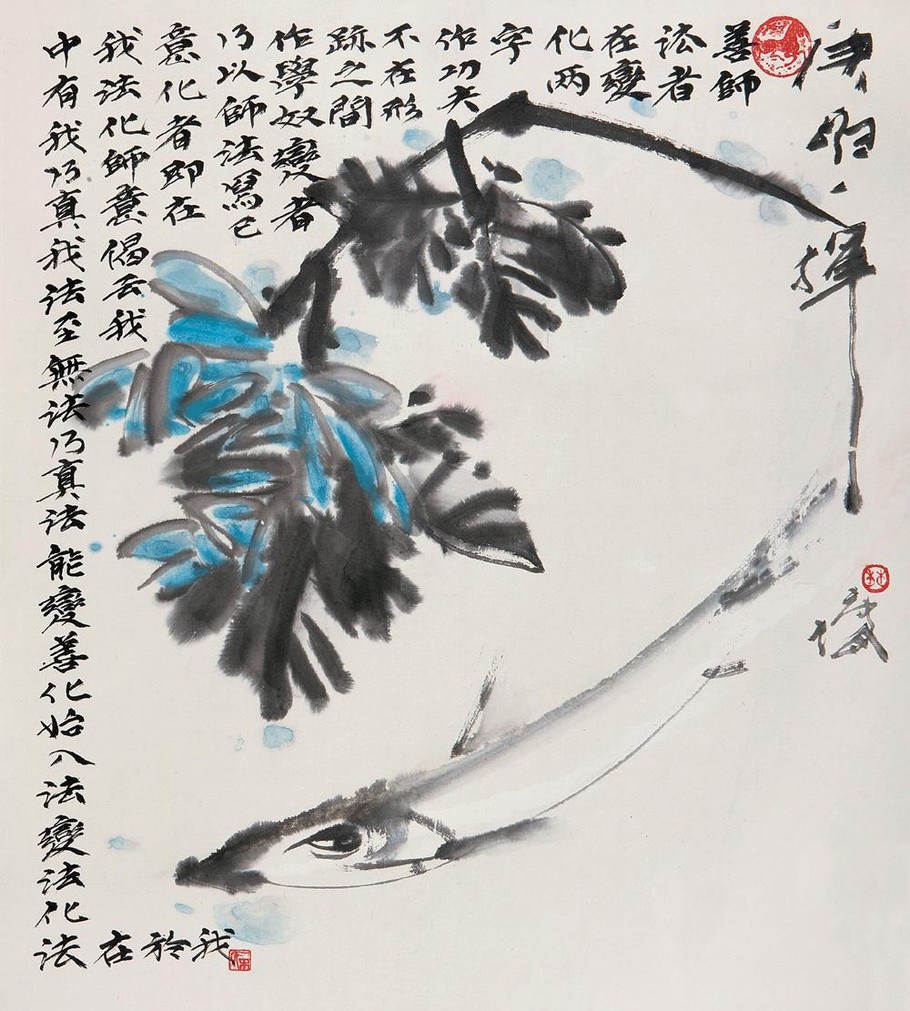 輝
善師
法者
在變
化两
字
作功夫
不在形
跡之間
作學奴變者
乃以師法爲已
意化者即在
我法化師意偈云我
中有我乃真我法至無法乃真法能變善化始入法變法化法
在於我